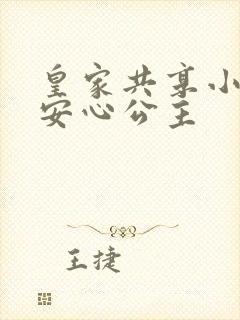 皇家共享小
安心公主
王捷